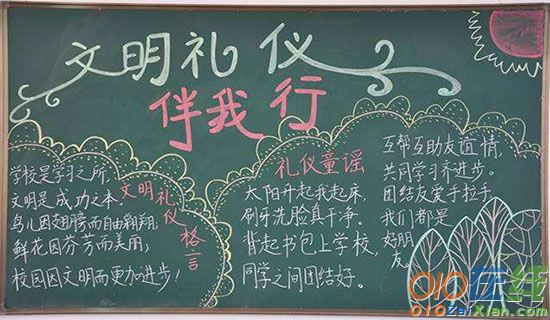 文明礼仪
伴我行
学校是学习之所,
文明是成功之本.
鸟儿因翅膀而自由翱翔,
鲜花因芬芳而美丽;
校园因文明而更加进步!
文明礼仪格言
礼仪童谣
太阳升起我起床,
刷牙洗脸真干净.
背起书包上学校,
同学之间团结好.
互帮互助友谊情,
共同学习齐进步.
团结友爱手拉手,
我们都是
好朋友.
010在线
010ZaiXian.com